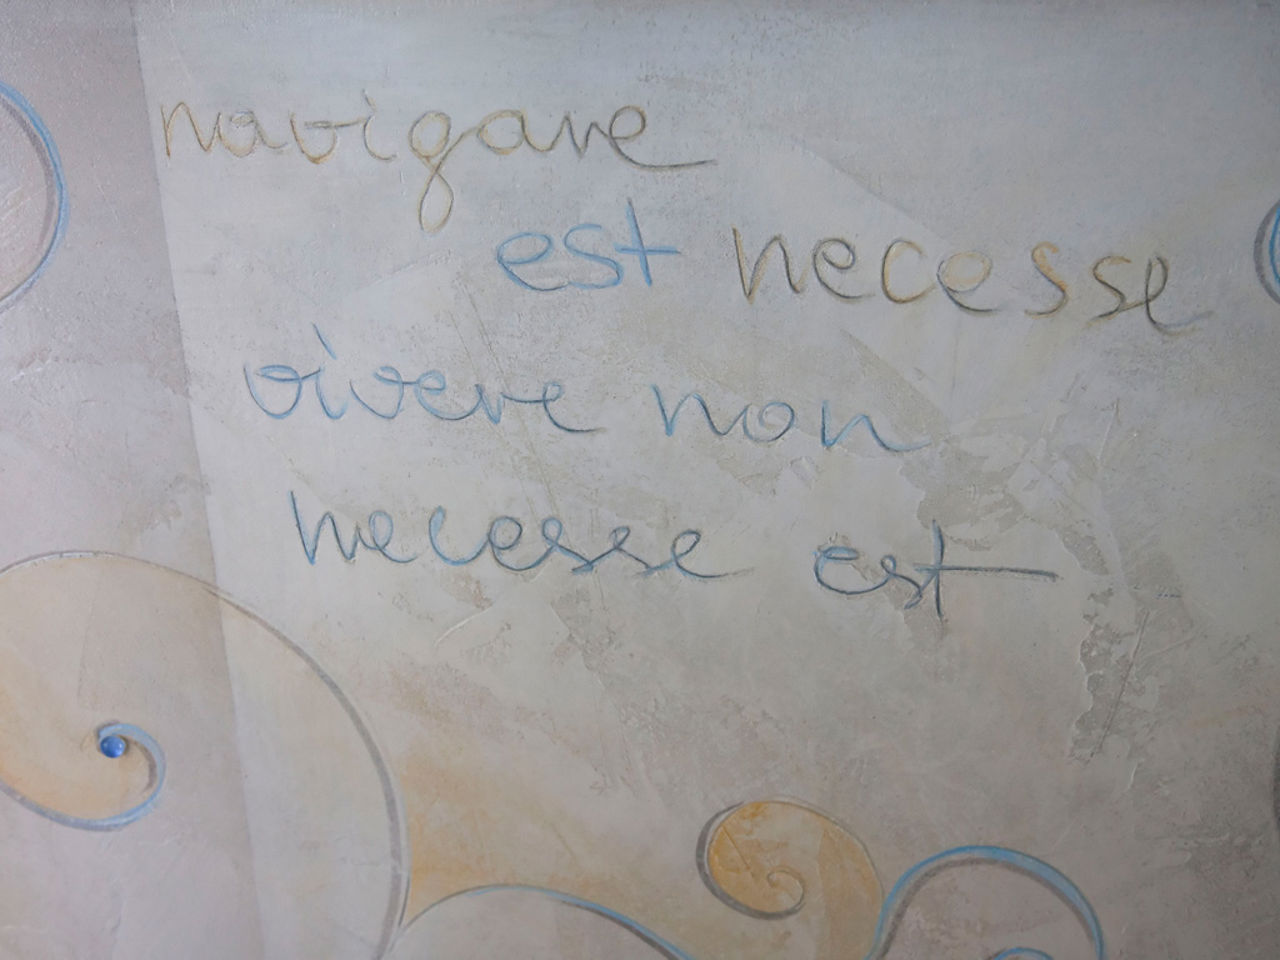 navigare
est necesse
vivere non
necesse est